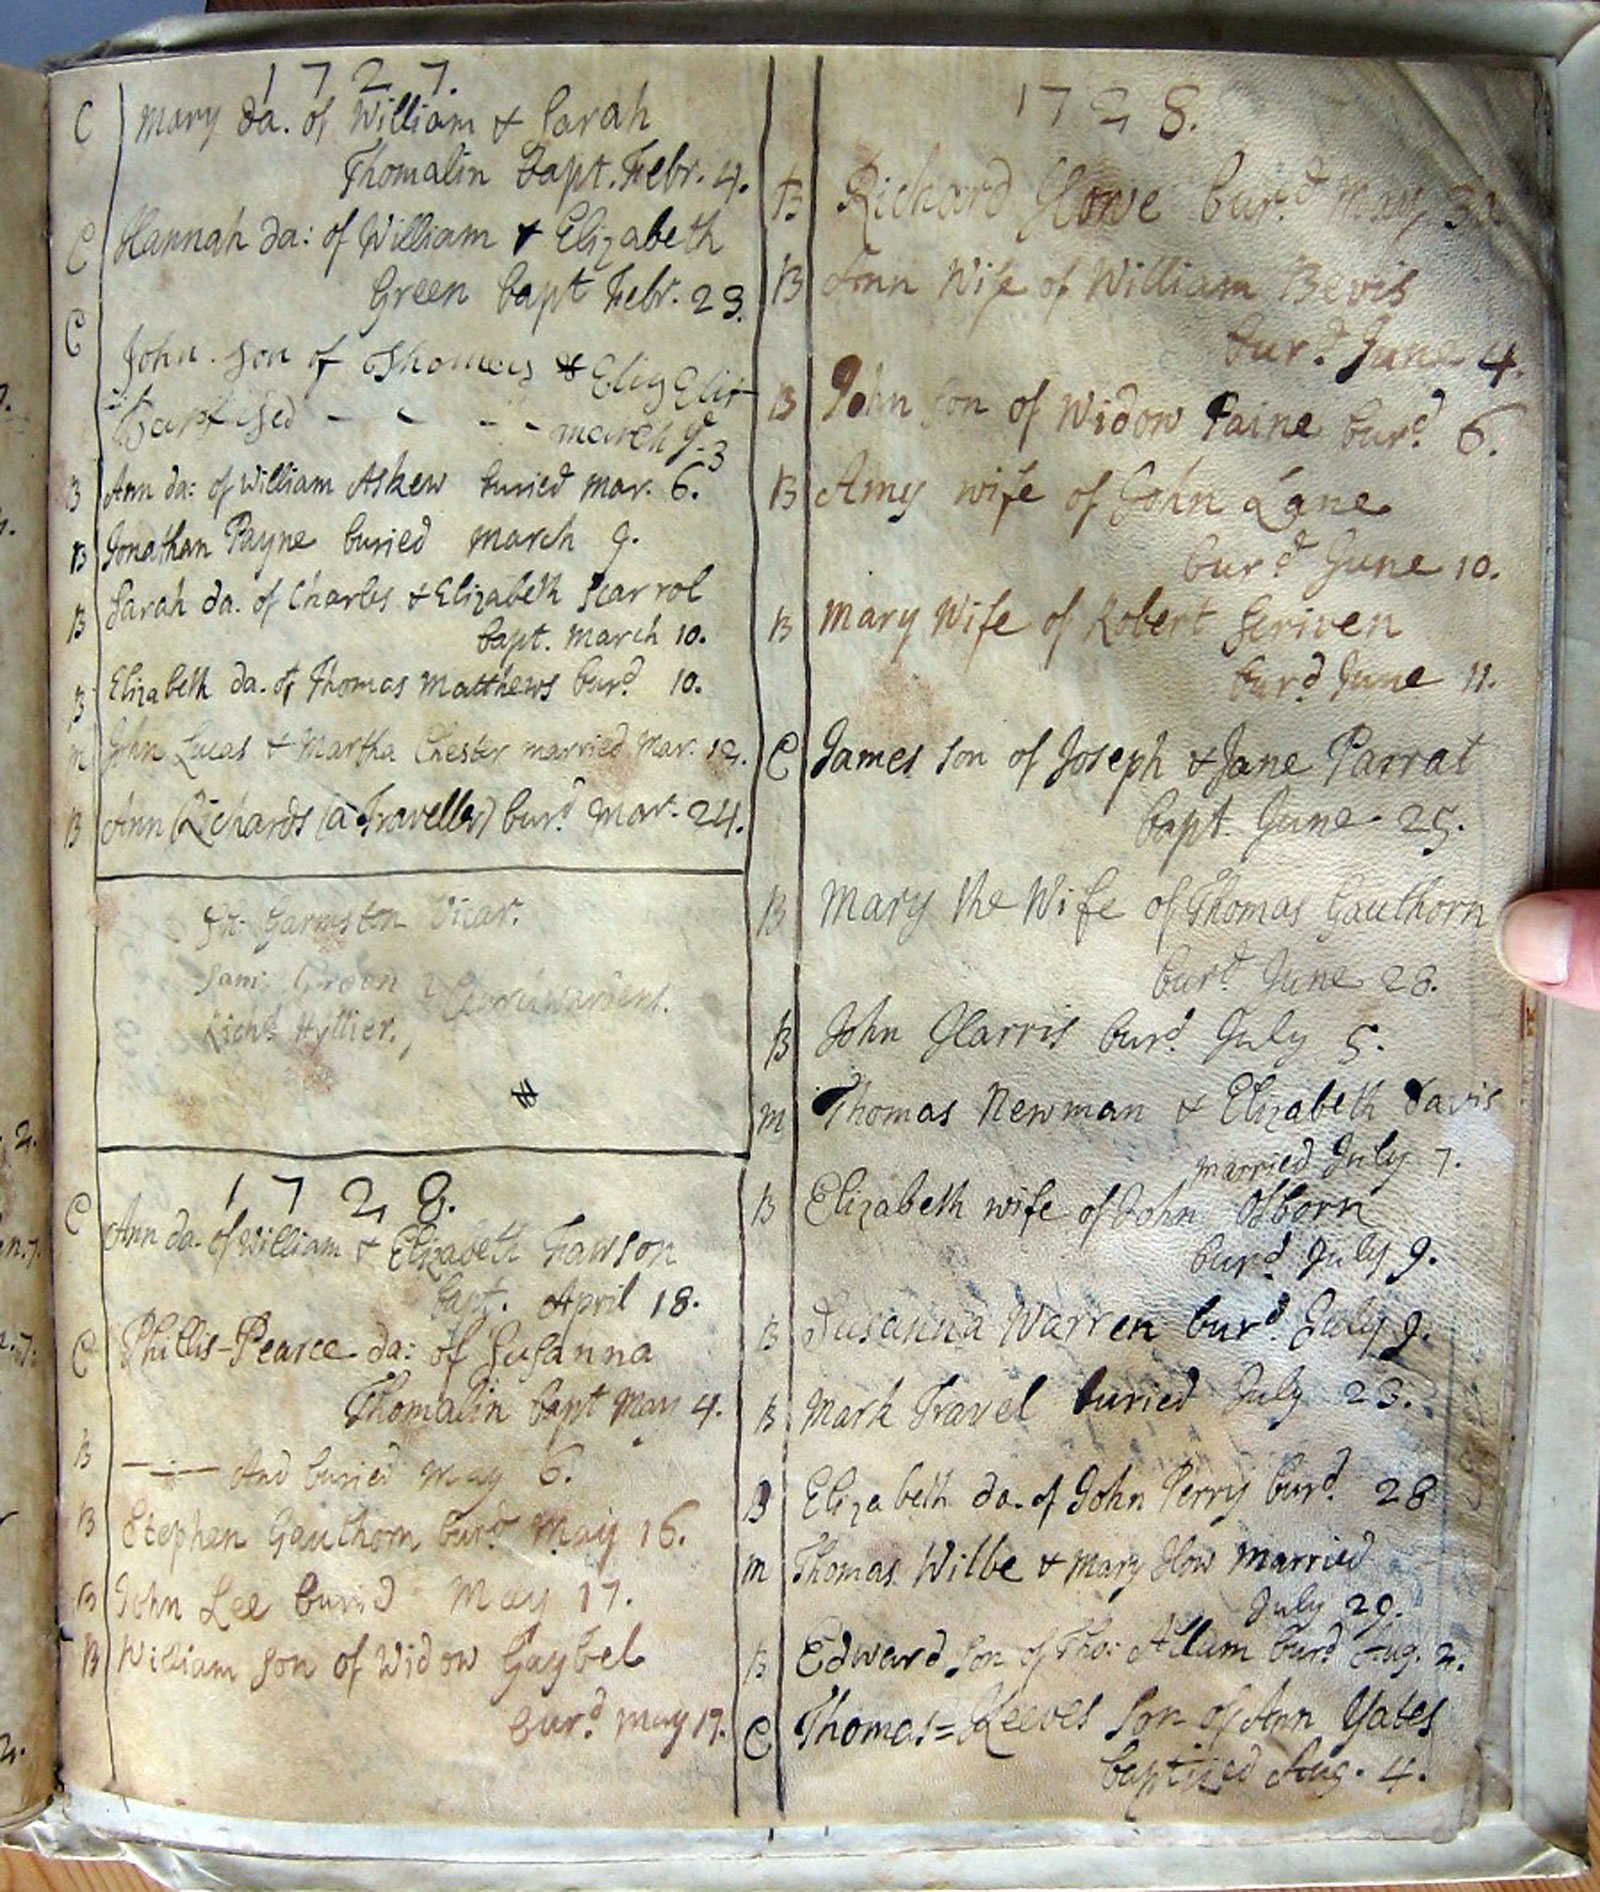 1727.
C Mary da. of William & Sarah
Thomalin bapt. Febr. 4.
C Hannah da: of William & Elizabeth
Green bapt Febr. 23.
C
John son of Thomas & Eliz
Baptised - - - - march ye 3
B Ann da: of William Askew buried Mar. 6.
B Jonathan Payne buried March 9.
B Sarah da. of Charles & Elizabeth Scarrol
bapt. March 10.
B Elizabeth da. of Thomas Matthews burd 10.
m John Lucas & Martha Chester married Mar. 12.
B Ann Richards (a Traveller) burd Mar. 24.
Garmston Vicar.
Sam: Green
Churchwardens.
Richd Hyllier.
1728.
C Ann da. of William & Elizabeth Fawson
bapt. April 18.
C Phillis-Pearce da: of Susanna
Thomalin bapt May 4.
B —— And buried May 6.
B Stephen Gauthorn burd May 16.
B John Lee buried May 17.
B William son of Widow Gaybel
burd May 19.
1728.
B Richard Howe burd May 30
B Ann Wife of William Bevis
burd June 4.
B John son of Widow Paine burd 6.
B Amy wife of John Lane
burd June 10.
B Mary Wife of Robert Scriven
burd June 11.
C James son of Joseph & Jane Parrat
bapt. June 25.
B Mary the Wife of Thomas Gauthorn
burd June 28.
B John Harris burd July 5.
m Thomas Newman & Elizabeth Davis
married July 7.
B Elizabeth wife of John Osborn
burd July 9.
B Susanna Warren burd July 9.
B Mark Travel buried July 23.
B Elizabeth da. of John Perry burd 28
m Thomas Wilbe & Mary How married
July 29.
B Edward son of Tho: Allum burd Aug. 2.
C Thomas=Reeves son of Ann Yates
baptized Aug. 4.